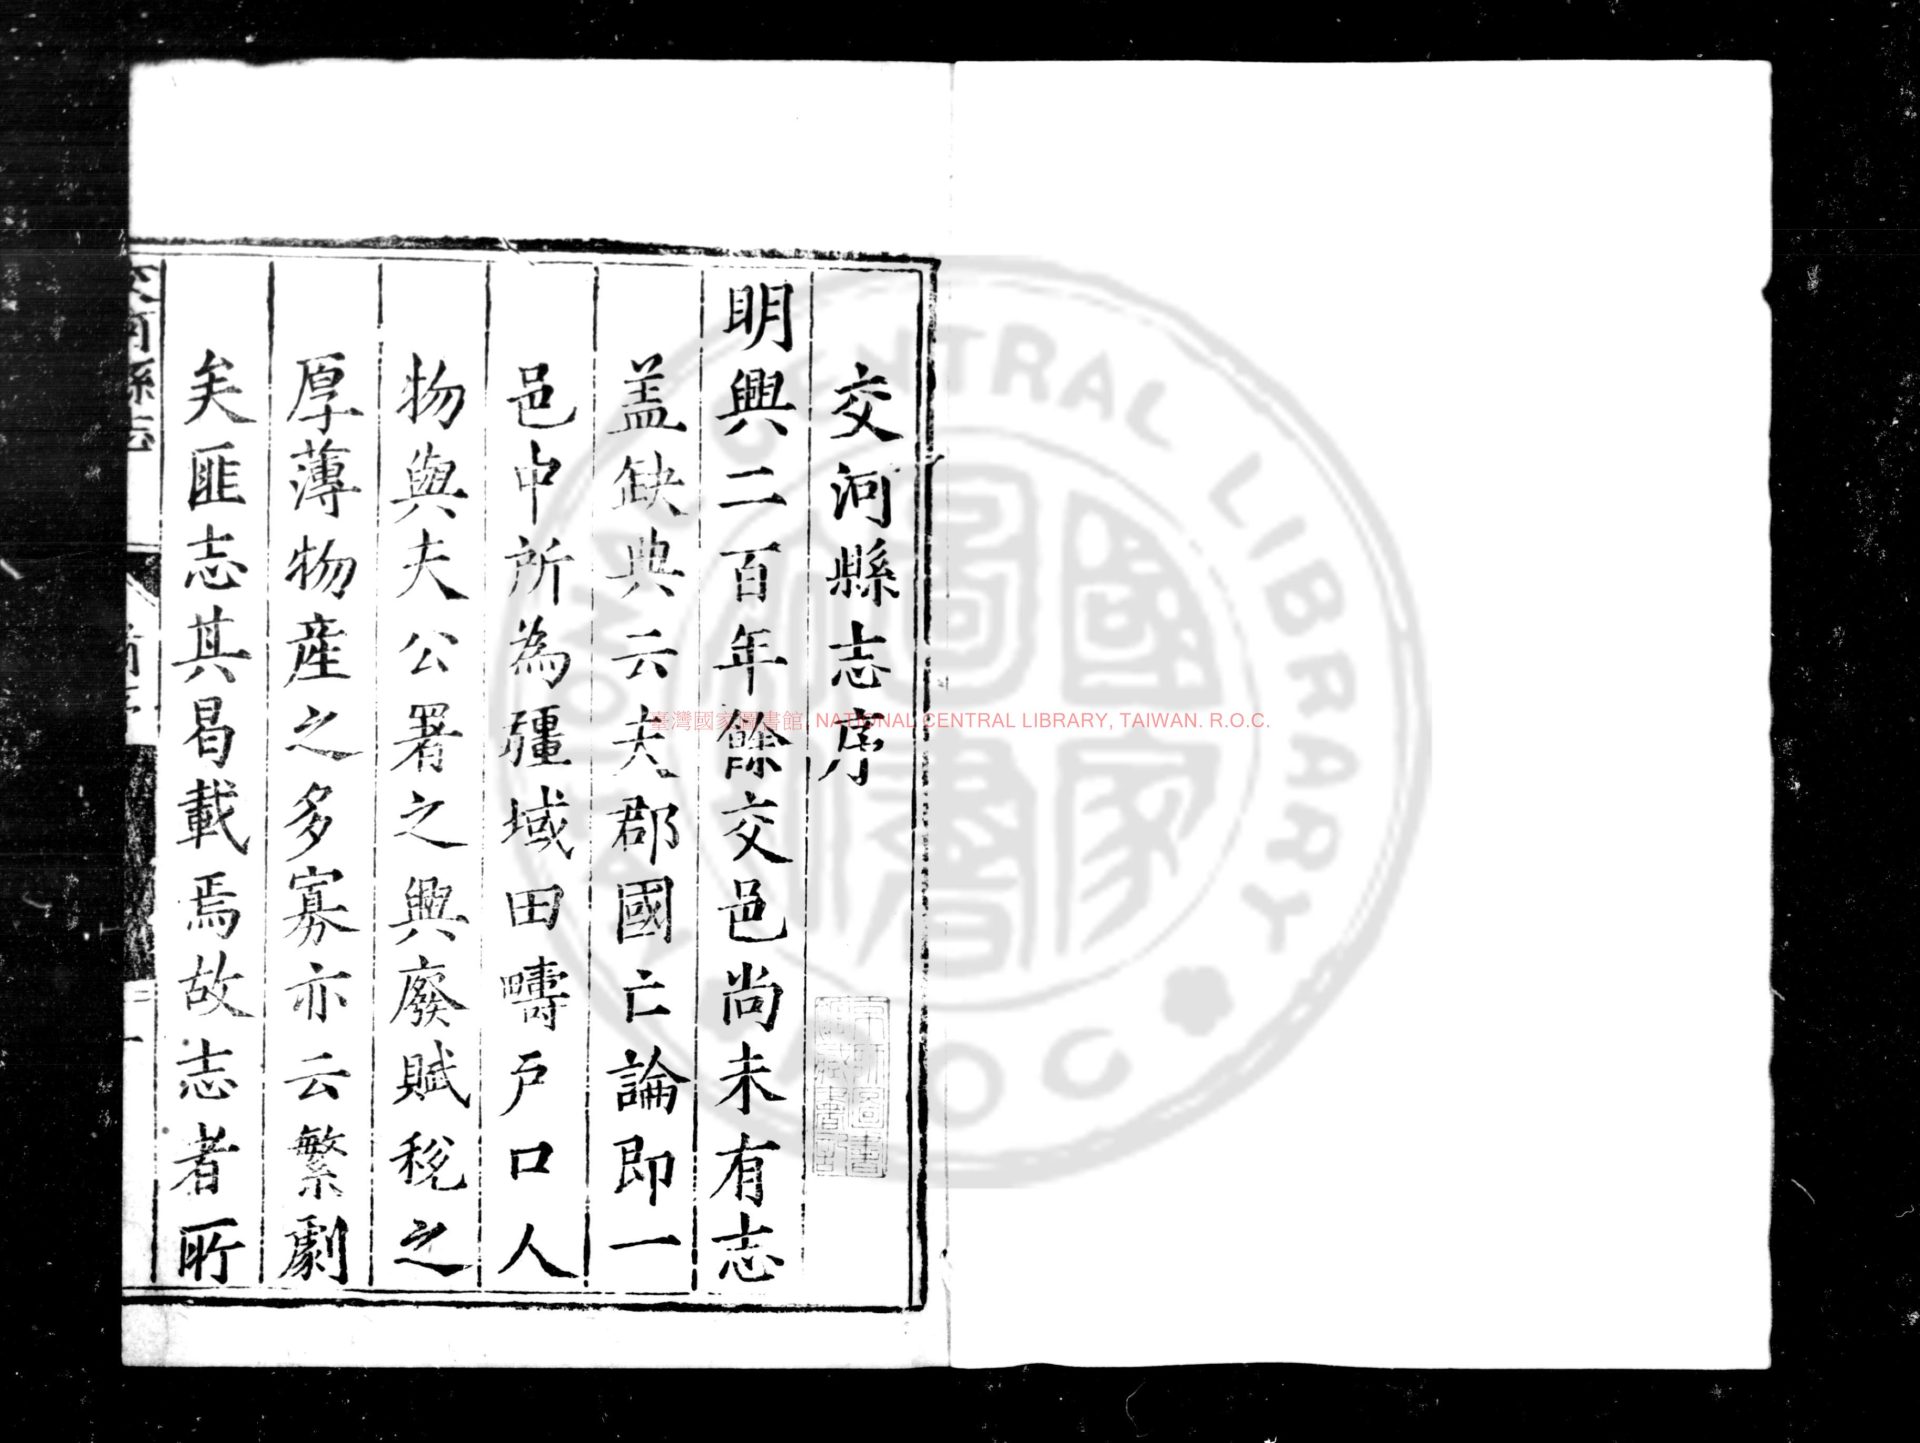 交河縣志序
明興二百年餘交邑尚未有志
盖缺典云夫郡國亡論即一
邑中所為疆域田疇戶口人
物與夫公署之興廢賦稅之
厚薄物產之多寡亦云繁劇
矣匪志其曷載焉故志者所
臺灣國家圖書館, NATIONAL CENTRAL LIBRARY, TAIWAN. R.O.C.
NATIONAL CENTRAL LIBRARY
R.O.C
國家圖書